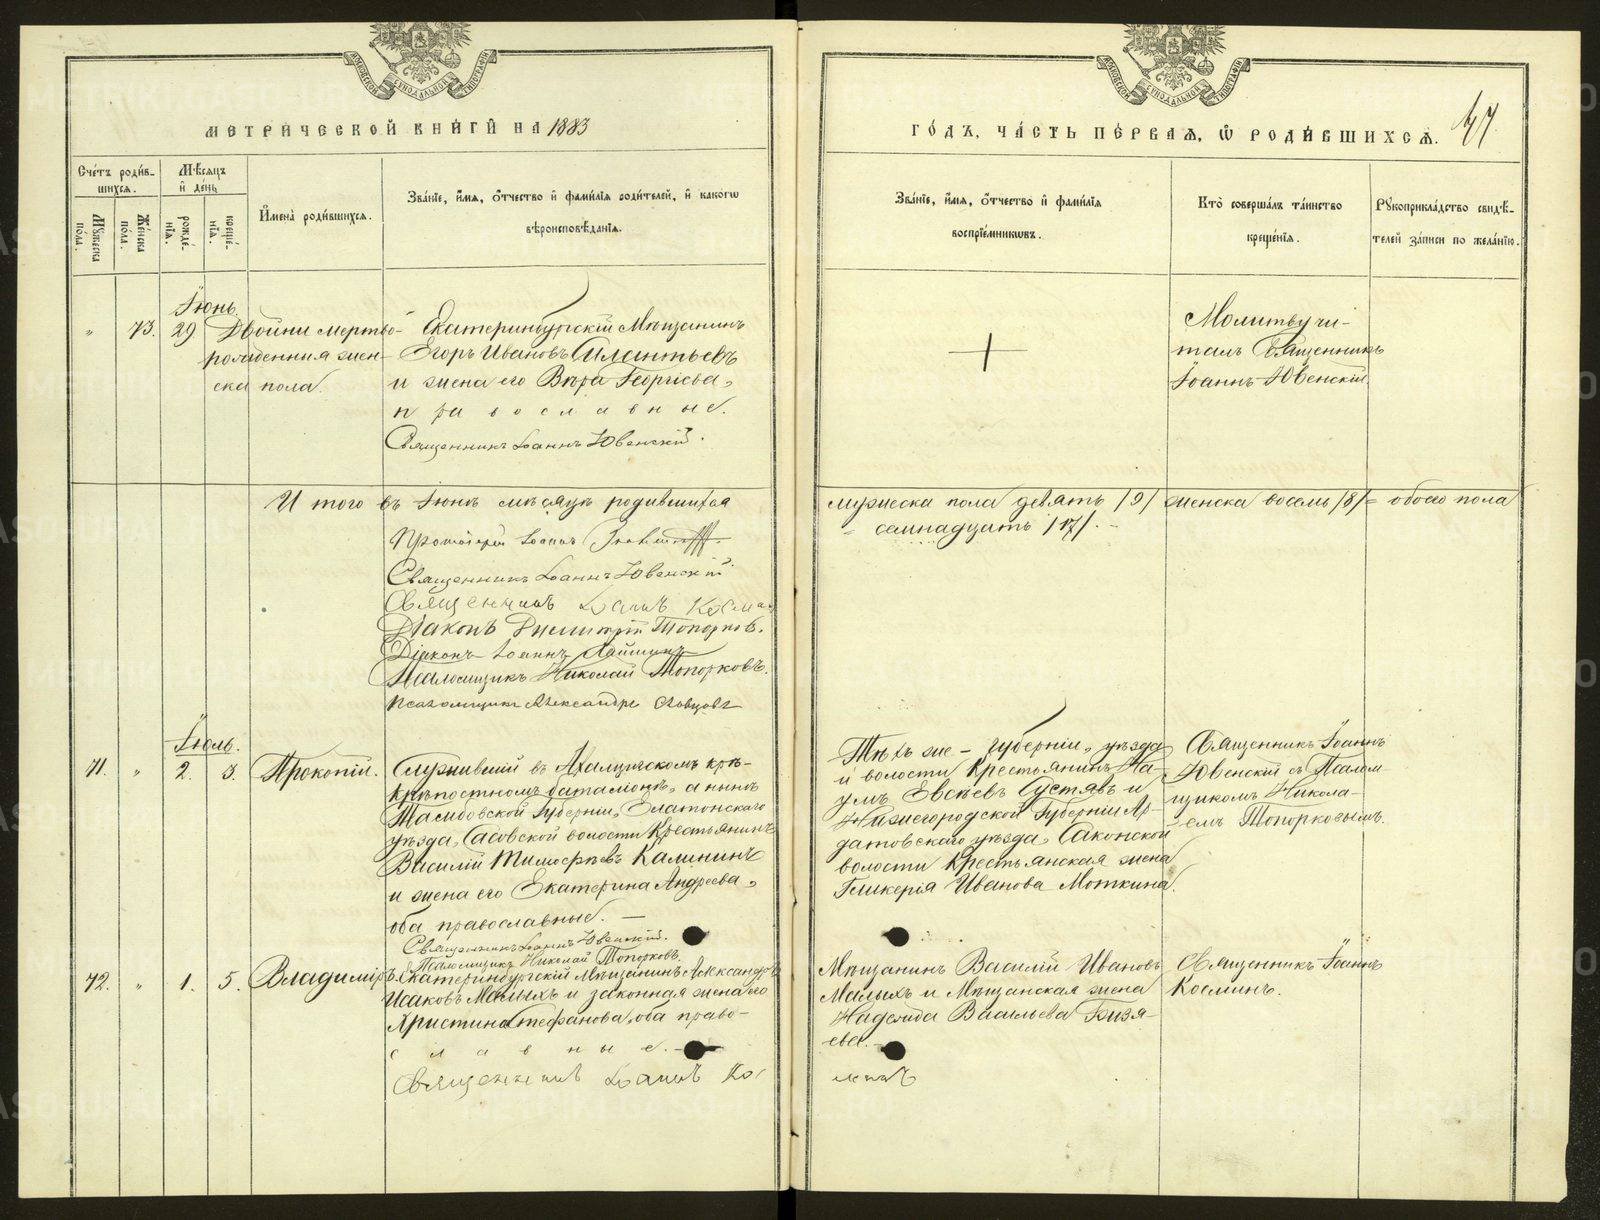 МЕТРИЧЕСКОЙ КНИГИ НА 1883
Счетъ родив-
шихся.
Мѣсяцъ
и день
Мужеска
пола.
Женска
пола.
рожде-
нія.
креще-
нія.
Имена родившихся.
Званіе, имя, отчество и фамилія родителей, и какого
вѣроисповѣданія.
Іюнь.
" 73. 29 Двойни мертво-
рожденныя жен-
ска пола.
Екатеринбургскій Мѣщанинъ
Егоръ Ивановъ Силантьевъ
и жена его Вѣра Георгіева,
православные.
Священникъ Іоаннъ Ювенскій.
Итого въ Іюнѣ мѣсяцѣ родившихся
Протоіерей Іоаннъ
Священникъ Іоаннъ Ювенскій
Священникъ Іоаннъ Косми
Діаконъ Димитрій Топорковъ.
Діаконъ Іоаннъ
Псаломщикъ Николай Топорковъ.
Псаломщикъ Александръ Словцовъ
Іюль.
71. " 2. 3. Прокопій.
Служившій въ Ахалцихскомъ крѣ-
Крѣпостномъ баталіонѣ, а нынѣ
Тамбовской губерніи, Елатомскаго
уѣзда, Сасовской волости Крестьянинъ
Василій Тимофѣевъ Калининъ
и жена его Екатерина Андреева,
оба православные. —
Священникъ Іоаннъ Ювенскій.
Псаломщикъ Николай Топорковъ.
72. " 1. 5. Владиміръ.
Екатеринбургскій Мѣщанинъ Александръ
Исаковъ Малыхъ и законная жена его
Христина Стефанова, оба право-
славные. —
Священникъ Іоаннъ Кос
ГОДЪ, ЧАСТЬ ПЕРВАЯ, Ѡ РОДИВШИХСЯ.
47
Званіе, имя, отчество и фамилія
воспріемниковъ.
Кто совершалъ таинство
крещенія.
Рукоприкладство свидѣ-
телей записи по желанію.
Молитву чи-
талъ Священникъ
Іоаннъ Ювенскій.
мужеска пола девять /9/ женска восемь /8/ = обоего пола
семнадцать /17/. —
Тѣхъ же — губерніи, уѣзда
и волости Крестьянинъ На-
умъ Евсѣевъ Сустявъ и
Нижегородской Губерніи Ар-
датовскаго уѣзда, Саконской
волости Крестьянская жена
Гликерія Иванова Моткина.
Священникъ Іоаннъ
Ювенскій съ Псалом-
щикомъ Никола-
емъ Топорковымъ.
Мѣщанинъ Василій Ивановъ
Малыхъ и Мѣщанская жена
Надежда Васильева Бизя-
ева. —
минъ
Священникъ Іоаннъ
Косминъ.